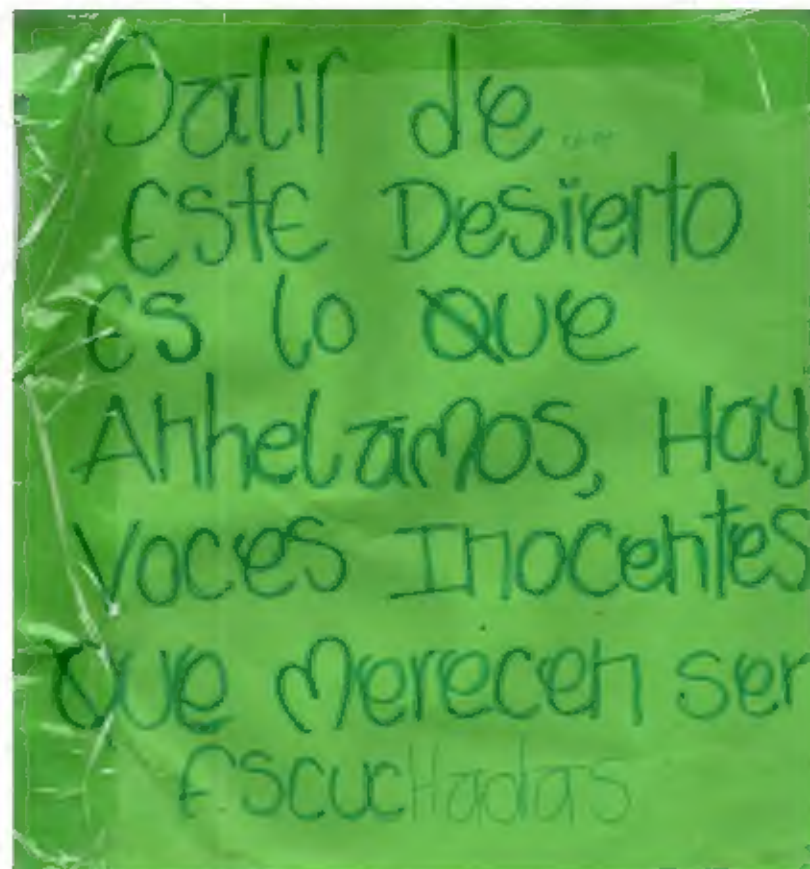 Salir de...
Este Desierto
Es lo que
Anhelamos, Hay
Voces Inocentes
que Merecen ser
EscucHadas